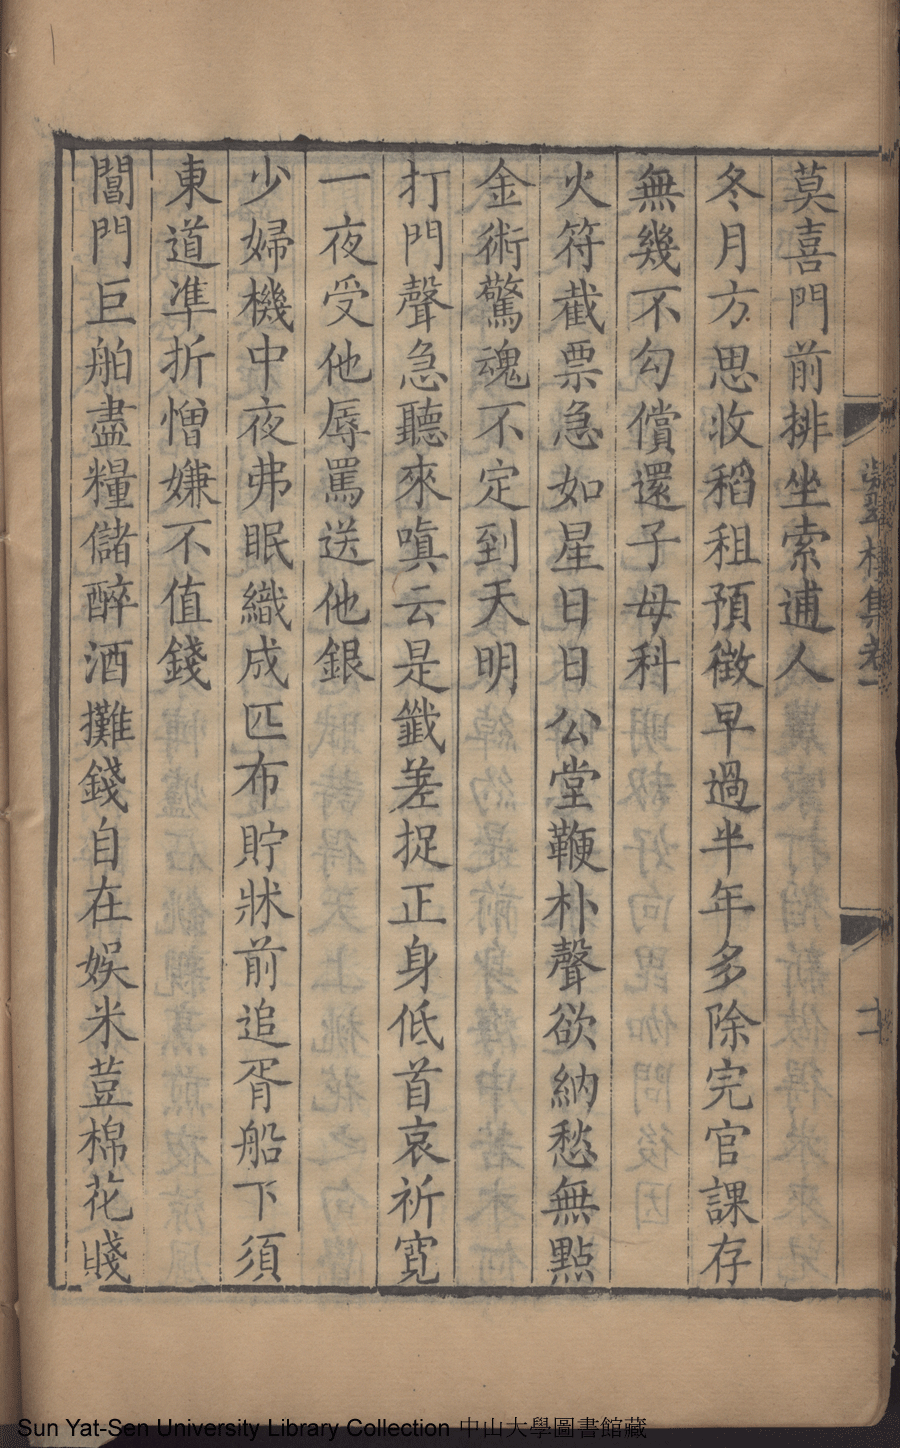 莫喜門前排坐索逋人
冬月方思收稻租預徵早過半年多除完官課存
無幾不勾償還子母科
火符截票急如星日日公堂鞭朴聲欲納愁無點
金術驚魂不定到天明
打門聲急聽來嗔云是鐵差捉正身低首哀祈寬
一夜受他辱罵送他銀
少婦機中夜弗眠織成匹布貯牀前追胥船下須
東道準折憎嫌不值錢
閶門巨舶盡糧儲醉酒攤錢自在娛米荳棉花賤
樓集卷一
十二
Sun Yat-Sen University Library Collection 中山大學圖書館藏